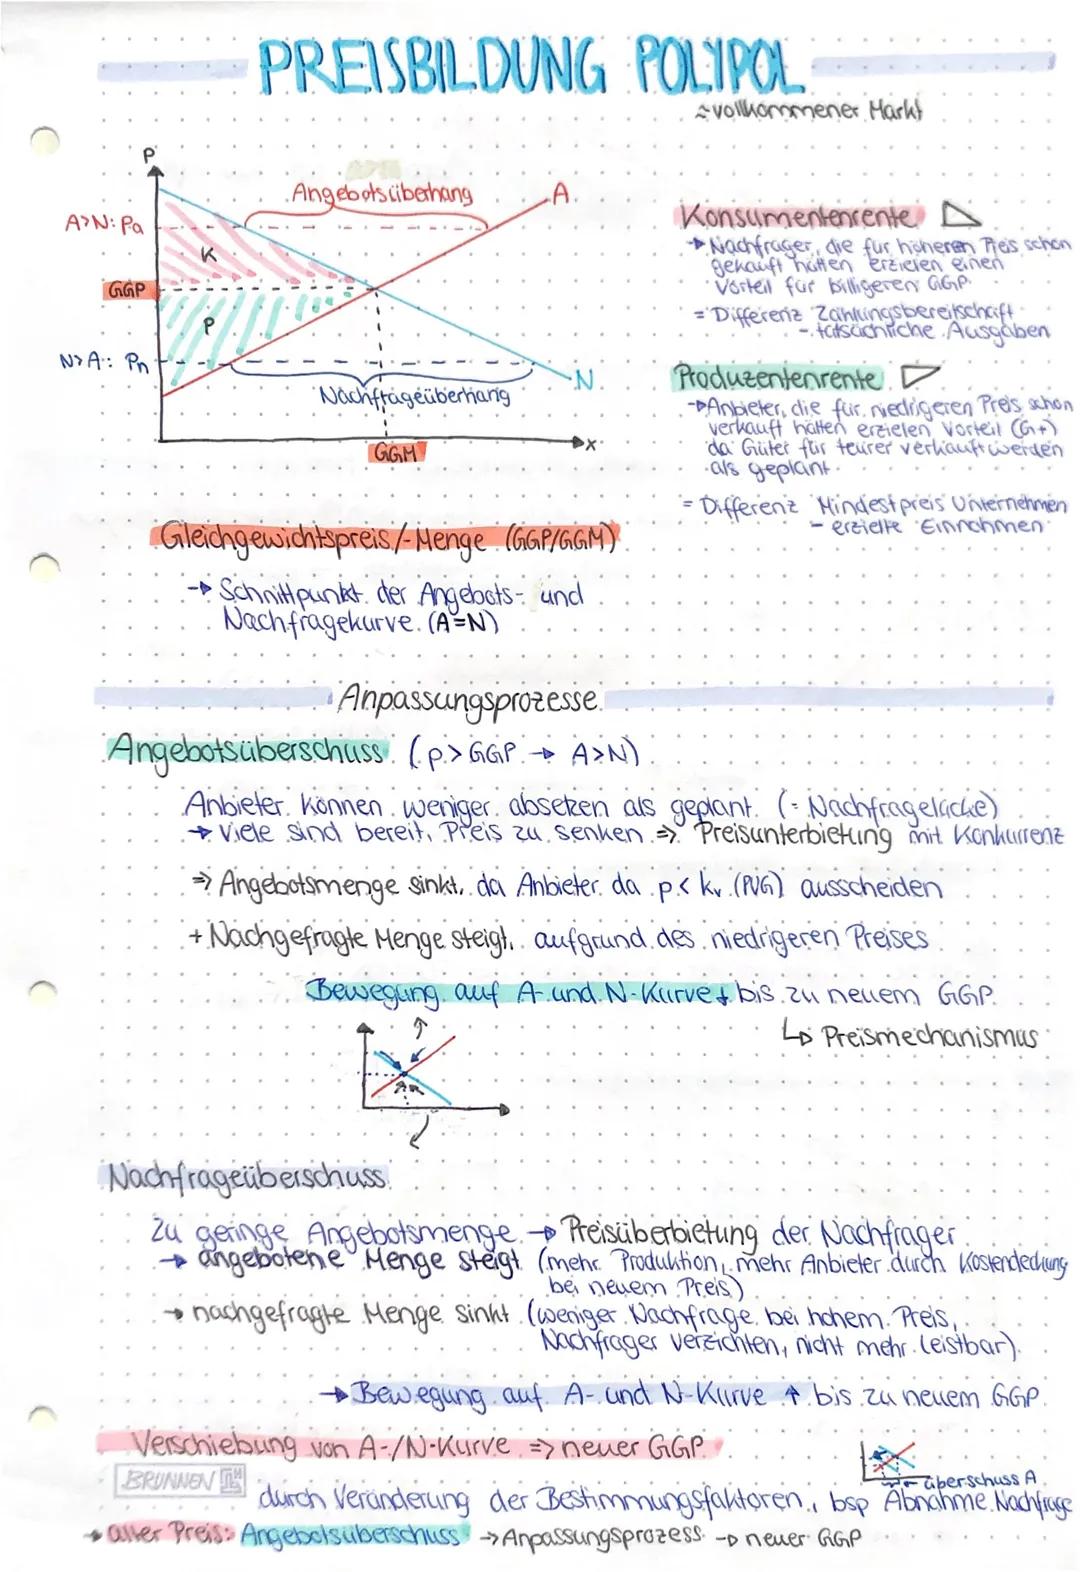 PREISBILDUNG POLYPOL
≙ vollkommener Markt
P
Angebotsüberhang
A
A>N: Pa
K
GGP
P
N>A: Pn
Nachfrageüberhang
N
x
GGM
Konsumentenrente
→ Nachfrager, die für höheren Preis schon
gekauft hätten erzielen einen
Vorteil für billigeren GGP
= Differenz Zahlungsbereitschaft
- tatsächliche Ausgaben
Produzentenrente
→ Anbieter, die für niedrigeren Preis schon
verkauft hätten erzielen Vorteil (G+)
da Güter für teurer verkauft werden
als geplant
= Differenz Mindestpreis Unternehmen
- erzielte Einnahmen
Gleichgewichtspreis/-Menge (GGP/GGM)
→ Schnittpunkt der Angebots- und
Nachfragekurve (A=N)
Anpassungsprozesse
Angebotsüberschuss (p > GGP → A>N)
Anbieter können weniger absetzen als geplant (= Nachfragelücke)
→ Viele sind bereit, Preis zu senken ⇒ Preisunterbietung mit Konkurrenz
⇒ Angebotsmenge sinkt, da Anbieter da p < kv (PUG) ausscheiden
+ Nachgefragte Menge steigt, aufgrund des niedrigeren Preises
Bewegung auf A- und N-Kurve ↓ bis zu neuem GGP
↳ Preismechanismus
Nachfrageüberschuss
Zu geringe Angebotsmenge → Preisüberbietung der Nachfrager
→ angebotene Menge steigt (mehr Produktion, mehr Anbieter durch Kostendeckung
bei neuem Preis)
→ nachgefragte Menge sinkt (weniger Nachfrage bei hohem Preis,
Nachfrager verzichten, nicht mehr leistbar)
→ Bewegung auf A- und N-Kurve ↑ bis zu neuem GGP
Verschiebung von A-/N-Kurve => neuer GGP
BRUNNEN
überschuss A
durch Veränderung der Bestimmungsfaktoren, bsp Abnahme Nachfrage
→ alter Preis: Angebotsüberschuss → Anpassungsprozess → neuer GGP